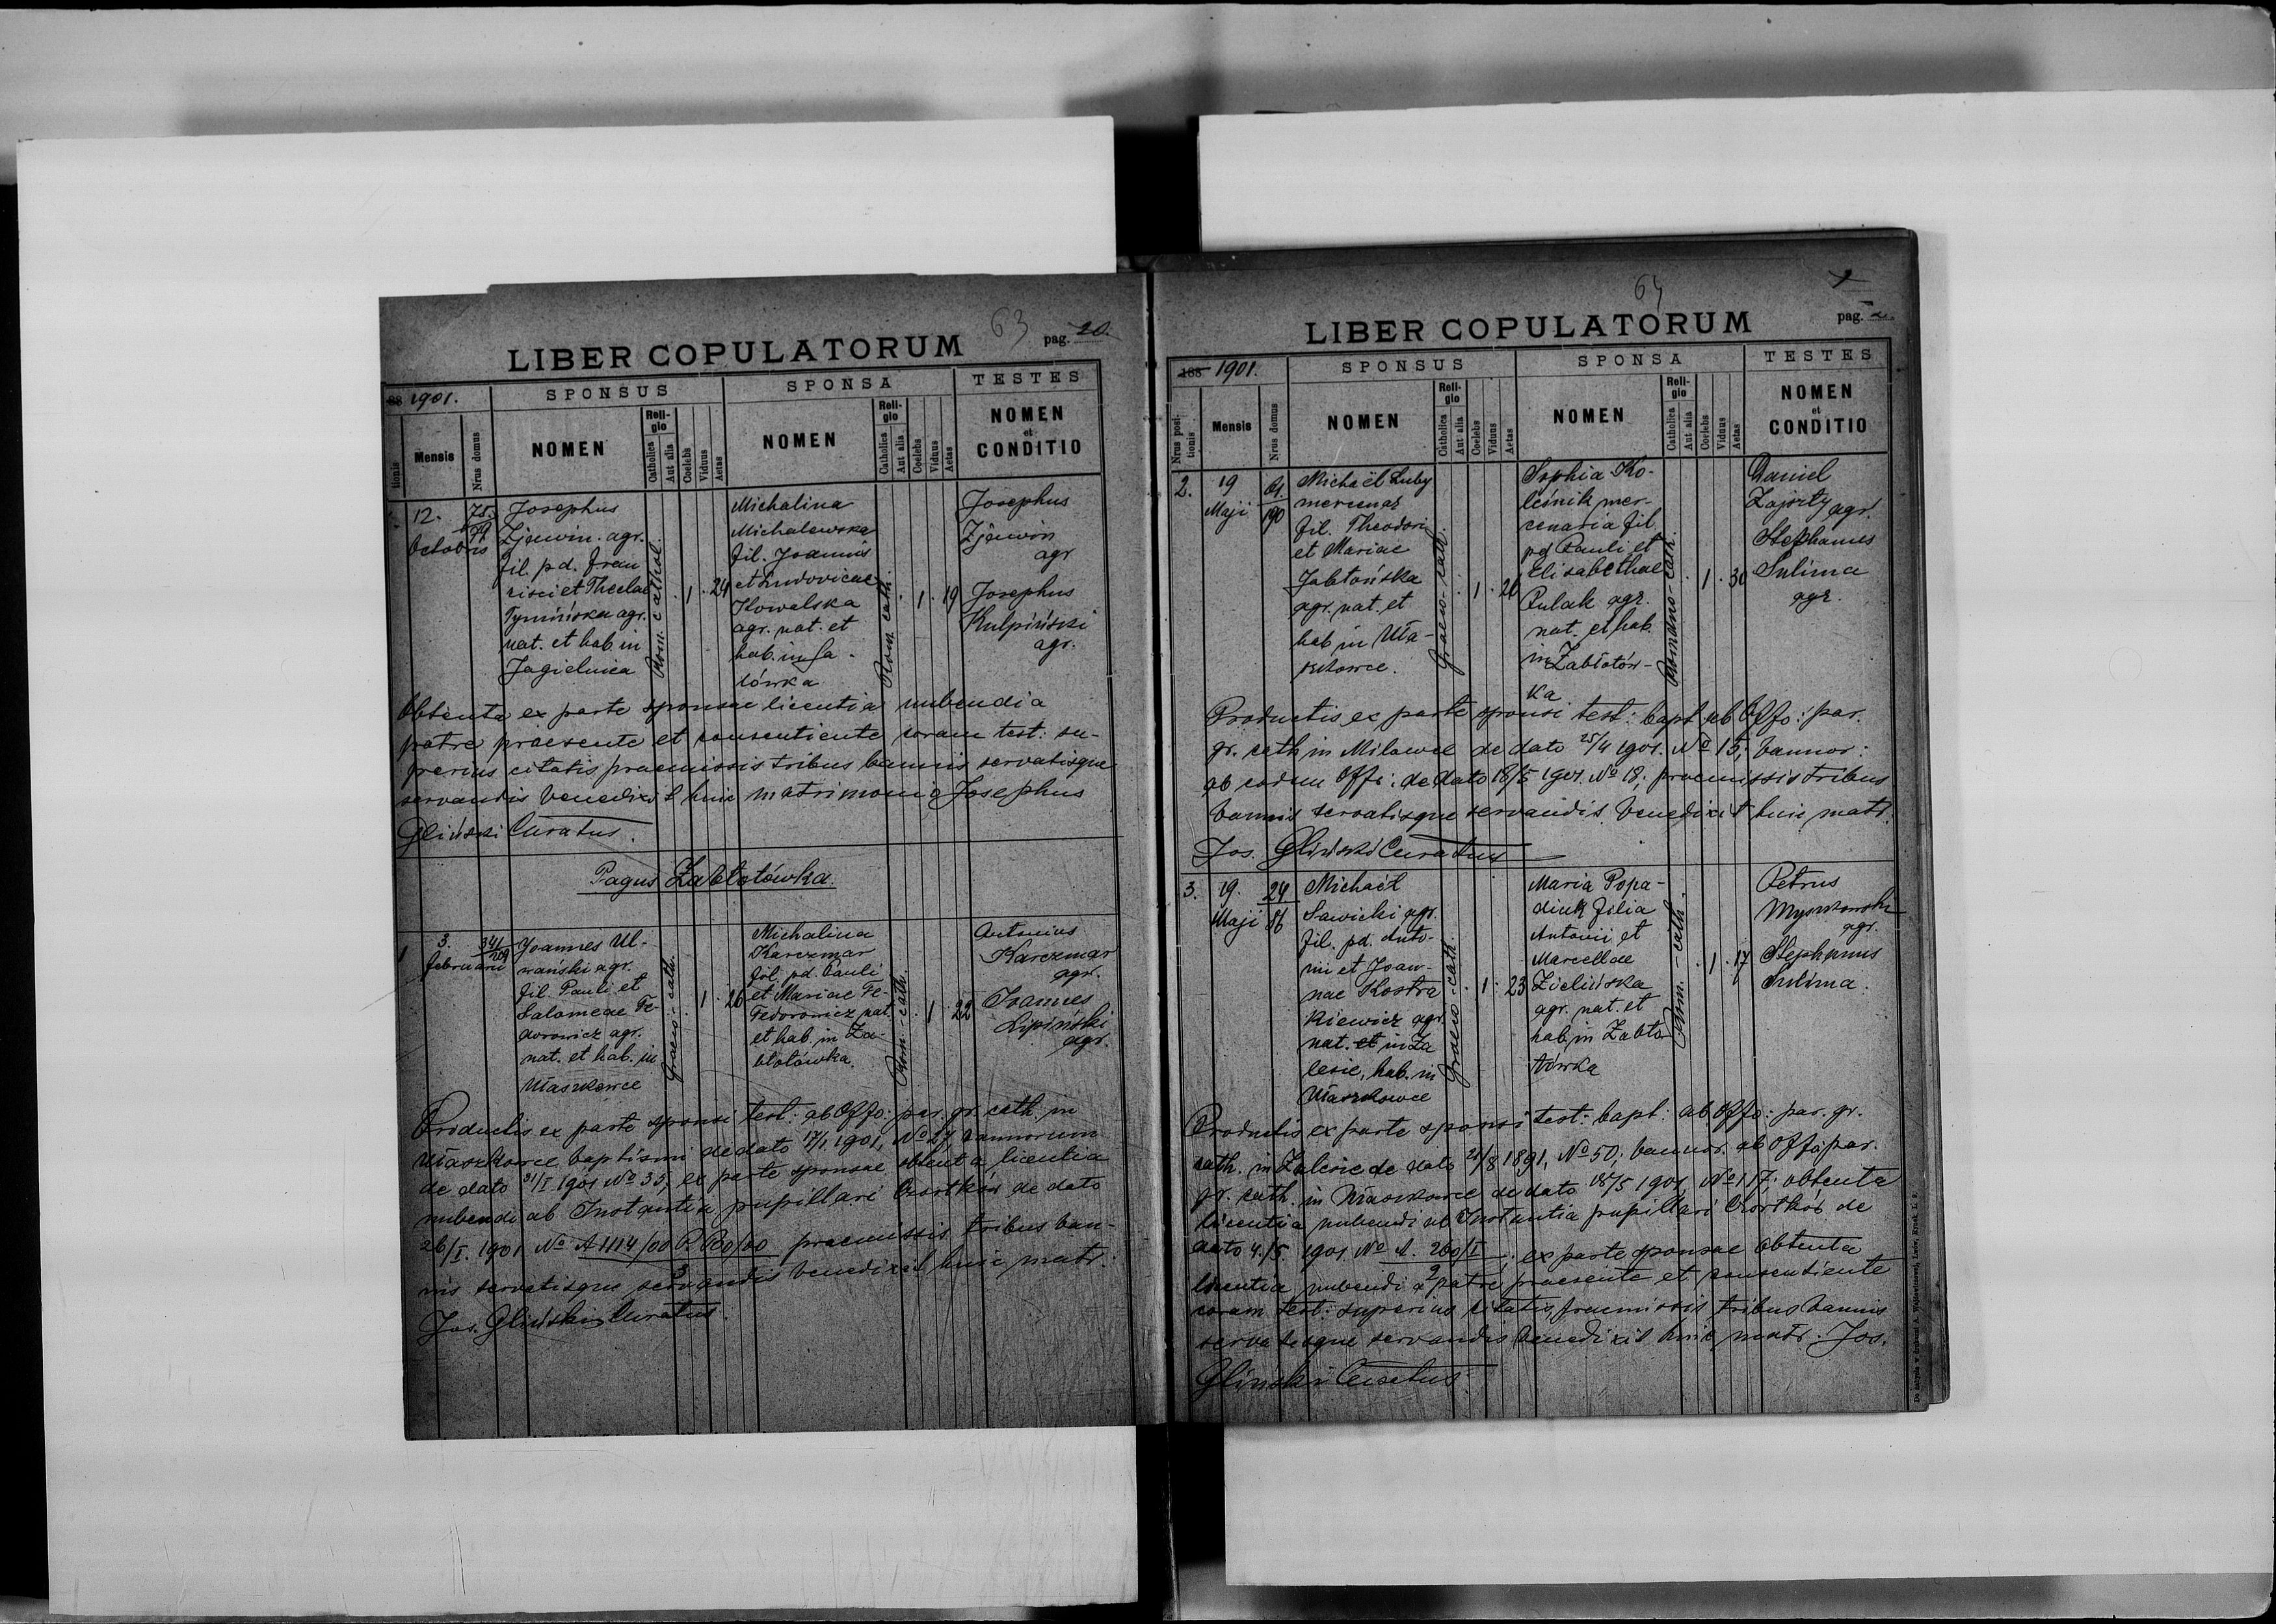 63
pag. 20.
LIBER COPULATORUM
88 1901.
SPONSUS
SPONSA
TESTES
tionis
Mensis
Nrus domus
NOMEN
Religio
Catholica
Aut alia
Coelebs
Viduus
Aetas
NOMEN
Religio
Catholica
Aut alia
Coelebs
Viduus
Aetas
NOMEN
et
CONDITIO
12.
Octobris
75.
Josephus
agr.
fil. pd. Fran
cisci et Theclae
Tymińska agr.
nat. et hab. in
Jagielnica
Rom. cathol.
1 . 24
Michalina
Michalewska
fil. Joannis
et Ludovicae
Kowalska
agr. nat. et
hab. in Sa-
lówka
Rom. cath.
1 . 19
Josephus
agr
Josephus
Kulpiński
agr.
Obtenta ex parte sponsae licentia nubendi a
patre praesente et consentiente coram test: su-
perius citatis praemissis tribus bannis servatisque
servandis benedixit huic matrimonio Josephus
Gliński Curatus.
Pagus Zabłotówka.
1
3.
februarii
341/209
Joannes Ul-
wański agr.
fil. Pauli et
Salomeae Fe-
dorowicz agr.
nat. et hab. in
Ułaszkowce
Graeco-cath.
1 . 26
Michalina
Karczmar
fil. pd. Pauli
et Mariae Fe-
Fedorowicz nat.
et hab. in Za-
błotówka.
Rom.-cath.
1 . 22
Antonius
Karczmar
agr.
Joannes
Lipiński
agr.
Productis ex parte sponsi test: ab Offo: par. gr. cath. in
Ułaszkowce baptismi de dato 17/1 1901, No 27 bannorum
de dato 31/I 1901 No 35, ex parte sponsae obtenta licentia
nubendi ab Instantia pupillari Czortków de dato
26/I. 1901 No A 1114/00 praemissis tribus ban-
3
nis servatisque servandis benedixit huic matr.
Jos. Gliński Curatus.
64
pag.
LIBER COPULATORUM
188 1901.
SPONSUS
SPONSA
TESTES
Nrus positionis
Mensis
Nrus domus
NOMEN
Religio
Catholica
Aut alia
Coelebs
Viduus
Aetas
NOMEN
Religio
Catholica
Aut alia
Coelebs
Viduus
Aetas
NOMEN
et
CONDITIO
2.
19
Maji
61.
190
Michaël Luby
mercenar
fil. Theodori
et Mariae
Jabłońska
agr. nat. et
hab in Uła-
szkowce.
Graeco-cath.
1 . 26
Sophia Ko-
leśnik mer-
cenaria fil
pd Pauli et
Elisabethae
Pulak agr.
nat. et hab.
in Zabłotów-
ka
Romano-cath.
1 . 30
Daniel
agr.
Stephanus
Sulima
agr.
Productis ex parte sponsi test: bapt ab Offo: par.
gr. cath in Milowce de dato 25/4 1901. No 15, bannor:
ab eodem Offo: de dato 18/5 1901. No 18, praemissis tribus
bannis servatisque servandis benedixit huic matr.
Jos. Gliński Curatus
3.
19.
Maji
24
86
Michaël
Sawicki agr.
fil. pd. Anto-
nii et Joan-
nae Kostra
kiewicz agr.
nat. et in Za
lesie, hab. in
Ułaszkowce
Graeco-cath.
1 . 23
Maria Popa-
diuk filia
Antonii et
Marcellae
Zielińska
agr. nat. et
hab. in Zabło
tówka
Rom.-cath.
1 . 17
Petrus
Myszkowski
agr.
Stephanus
Sulima.
Productis ex parte sponsi test: bapt: ab Offo: par. gr.
cath. in Zalesie de dato 21/8 1891, No 50, bannor. ab Offo par.
gr. cath. in Ułaszkowce de dato 18/5 1901 No 117; obtenta
licentia nubendi ab Instantia pupillari Czortków de
dato 4./5. 1901. No A. 260/I; ex parte sponsae obtenta
9
licentia nubendi a patre praesente et consentiente
coram test: superius citatis, praemissis tribus bannis
servatisque servandis benedixit huic matr. Jos.
Gliński Curatus.